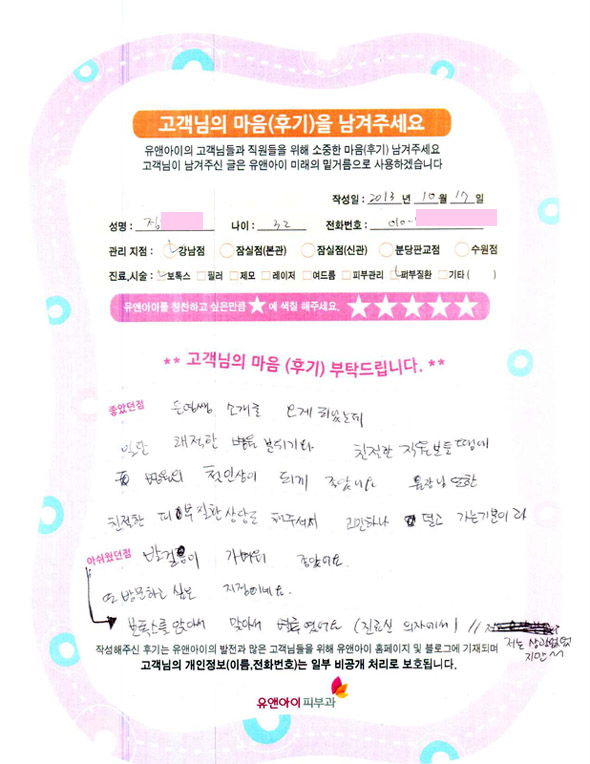 고객님의 마음(후기)을 남겨주세요
유앤아이의 고객님들과 직원들을 위해 소중한 마음(후기) 남겨주세요
고객님이 남겨주신 글은 유앤아이 미래의 밑거름으로 사용하겠습니다
작성일 : 2013 년 10 월 17 일
성명 : 나이 : 32 전화번호 : 010-
관리 지점 : 강남점 잠실점(본관) 잠실점(신관) 분당판교점 수원점
진료,시술 : 보톡스 필러 제모 레이저 여드름 피부관리 피부질환 기타 ( )
유앤아이를 칭찬하고 싶은만큼 ★ 에 색칠 해주세요. ★★★★★
** 고객님의 마음 (후기) 부탁드립니다. **
좋았던점 소개로 오게 되었는데
일단 쾌적한 병원 분위기와 친절한 직원분들 땜에
병원의 첫인상이 되게 좋았네요 원장님 또한
친절한 피부질환상담도 해주셔서 고민하나 덜고 가는기분이라
아쉬웠던점 발걸음이 가벼워 좋았어요.
또 방문하고 싶은 지점이네요.
보톡스를 앉아서 맞아서 (진료실 의자에서) //
저는 상관없었지만~
작성해주신 후기는 유앤아이의 발전과 많은 고객님들을 위해 유앤아이 홈페이지 및 블로그에 기재되며
고객님의 개인정보(이름,전화번호)는 일부 비공개 처리로 보호됩니다.
유앤아이 피부과